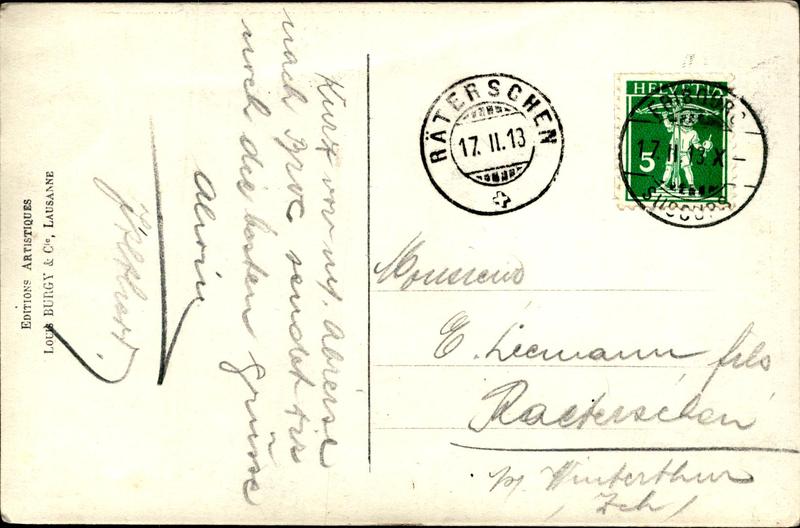 Kurz vor m. Abreise
nach Broc sendet Dir
noch die besten Grüsse
Alwin
EDITIONS ARTISTIQUES
LOUIS BURGY & Cie, LAUSANNE
RÄTERSCHEN
17. II. 13
HELVETIA
5
FRIBOURG
17. II. 13. X
Monsieur
E. Liemann fils
Raeterschen
b/ Winterthur
(Zch)